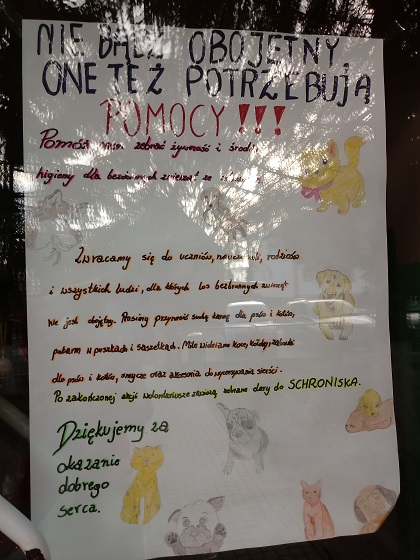 NIE BĄDŹ OBOJĘTNY
ONE TEŻ POTRZEBUJĄ
POMOCY !!!
Pomóż nam zebrać żywność i środki
higieny dla bezdomnych zwierząt ze
Zwracamy się do uczniów, nauczycieli, rodziców
i wszystkich ludzi, dla których los bezbronnych zwierząt
nie jest obojętny. Prosimy przynosić suchą karmę dla psów i kotów,
pokarm w puszkach i saszetkach. Mile widziane koce, kołdry, zabawki
dla psów i kotów, smycze oraz akcesoria do wyczesywania sierści.
Po zakończonej akcji wolontariusze zawiozą zebrane dary do SCHRONISKA.
Dziękujemy za
okazanie
dobrego
serca.